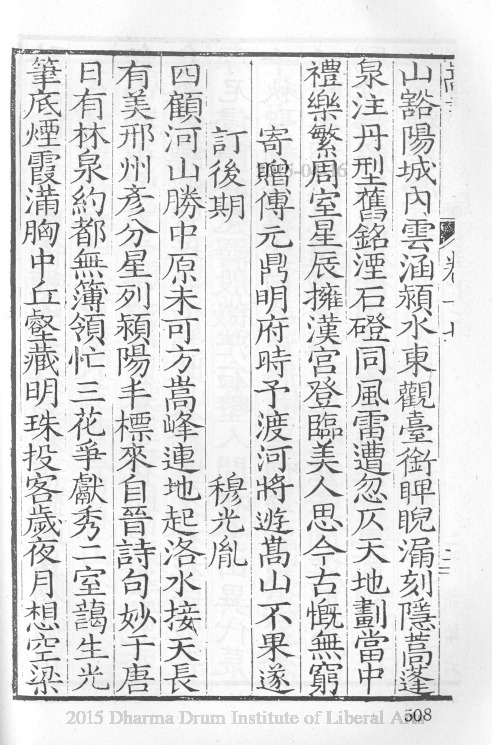 山豁陽城內雲涵潁水東觀臺銜睥睨漏刻隱蒿蓬
泉注丹型舊銘湮石磴同風雷遭忽仄天地劃當中
禮樂繁周室星辰擁漢宮登臨美人思今古慨無窮
寄贈傅元鼎明府時予渡河將遊嵩山不果遂
訂後期 穆光胤
四顧河山勝中原未可方嵩峰連地起洛水接天長
有美邢州彥分星列潁陽丰標來自晉詩句妙于唐
日有林泉約都無簿領忙三花爭獻秀二室藹生光
筆底煙霞滿胸中丘壑藏明珠投客歲夜月想空梁
508
2015 Dharma Drum Institute of Liberal Arts